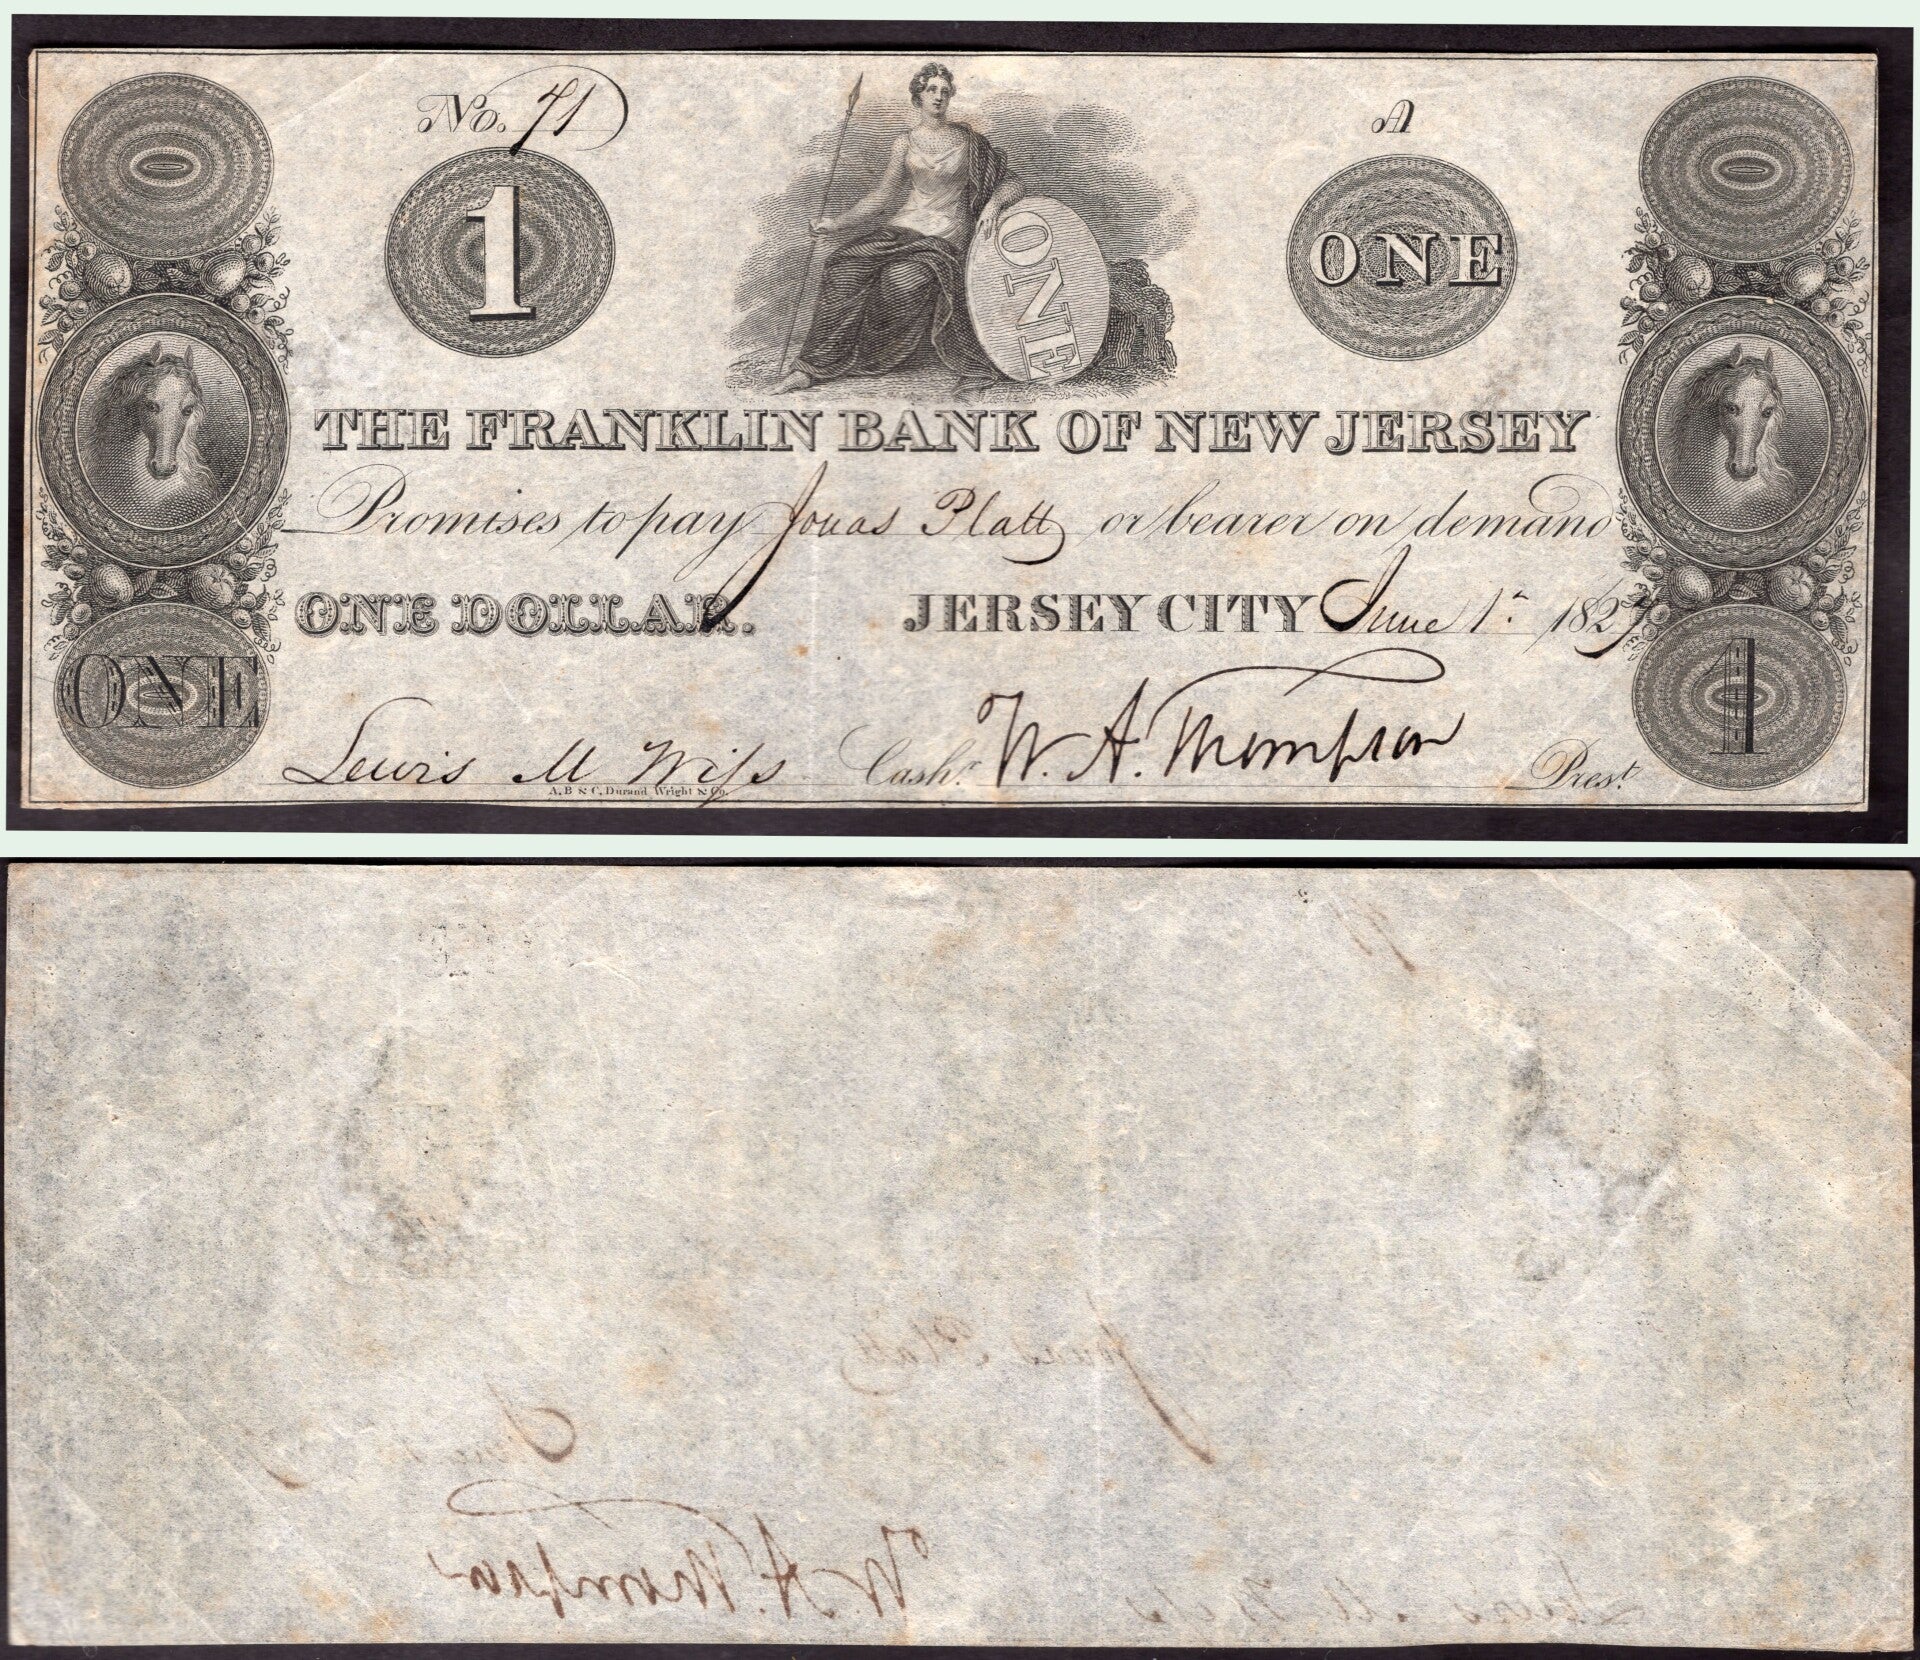 No. 71
A
1
ONE
ONE
THE FRANKLIN BANK OF NEW JERSEY
Promises to pay Jonas Platt or bearer on demand
ONE DOLLAR. JERSEY CITY June 1st 1827
ONE
1
Lewis M Wiss Cashr. W. A. Thompson Prest.
A.B & C. Durand, Wright & Co.